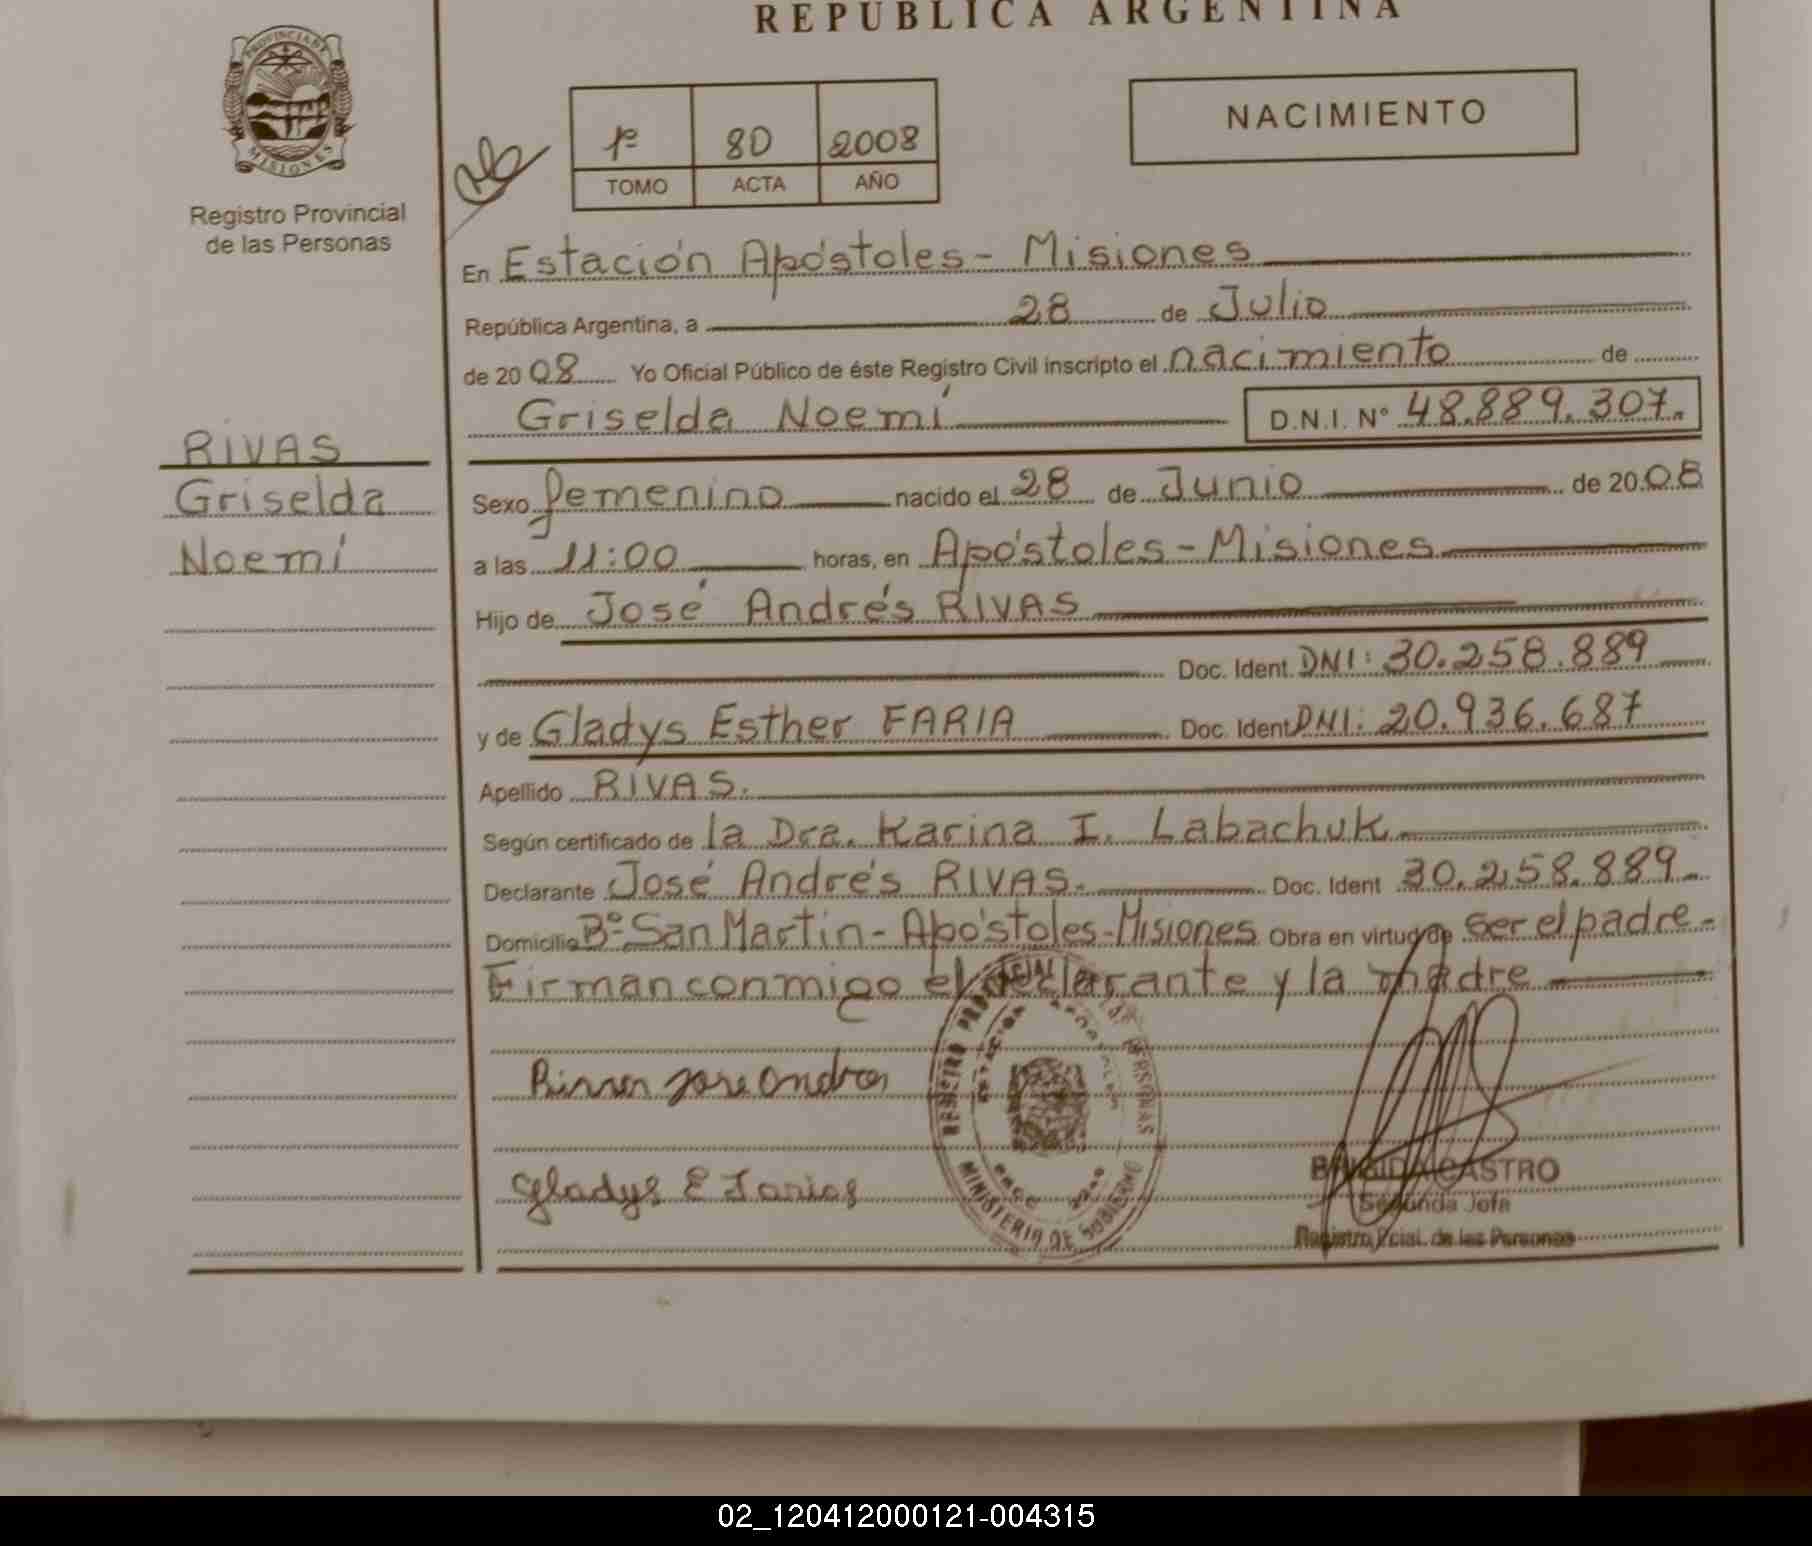 REPUBLICA ARGENTINA
PROVINCIA DE
MISIONES
Registro Provincial
de las Personas
1º 80 2008
TOMO ACTA AÑO
NACIMIENTO
En Estación Apóstoles - Misiones
República Argentina, a 28 de Julio
de 2008 Yo Oficial Público de éste Registro Civil inscripto el nacimiento de
Griselda Noemí D.N.I. Nº 48.889.307.
RIVAS
Griselda
Noemí
Sexo femenino nacido el 28 de Junio de 2008
a las 11:00 horas, en Apóstoles - Misiones
Hijo de José Andrés RIVAS
Doc. Ident. DNI: 30.258.889
y de Gladys Esther FARIA Doc. Ident DNI: 20.936.687
Apellido RIVAS.
Según certificado de la Dra. Karina I. Labachuk
Declarante José Andrés RIVAS. Doc. Ident 30.258.889
Domicilio Bº San Martin - Apóstoles - Misiones Obra en virtud de ser el padre -
Firman conmigo el declarante y la madre
REGISTRO PROVINCIAL DE LAS PERSONAS
MINISTERIO DE GOBIERNO
Gladys E
BRIGIDA CASTRO
Segunda Jefa
Registro Pcial. de las Personas
02_120412000121-004315